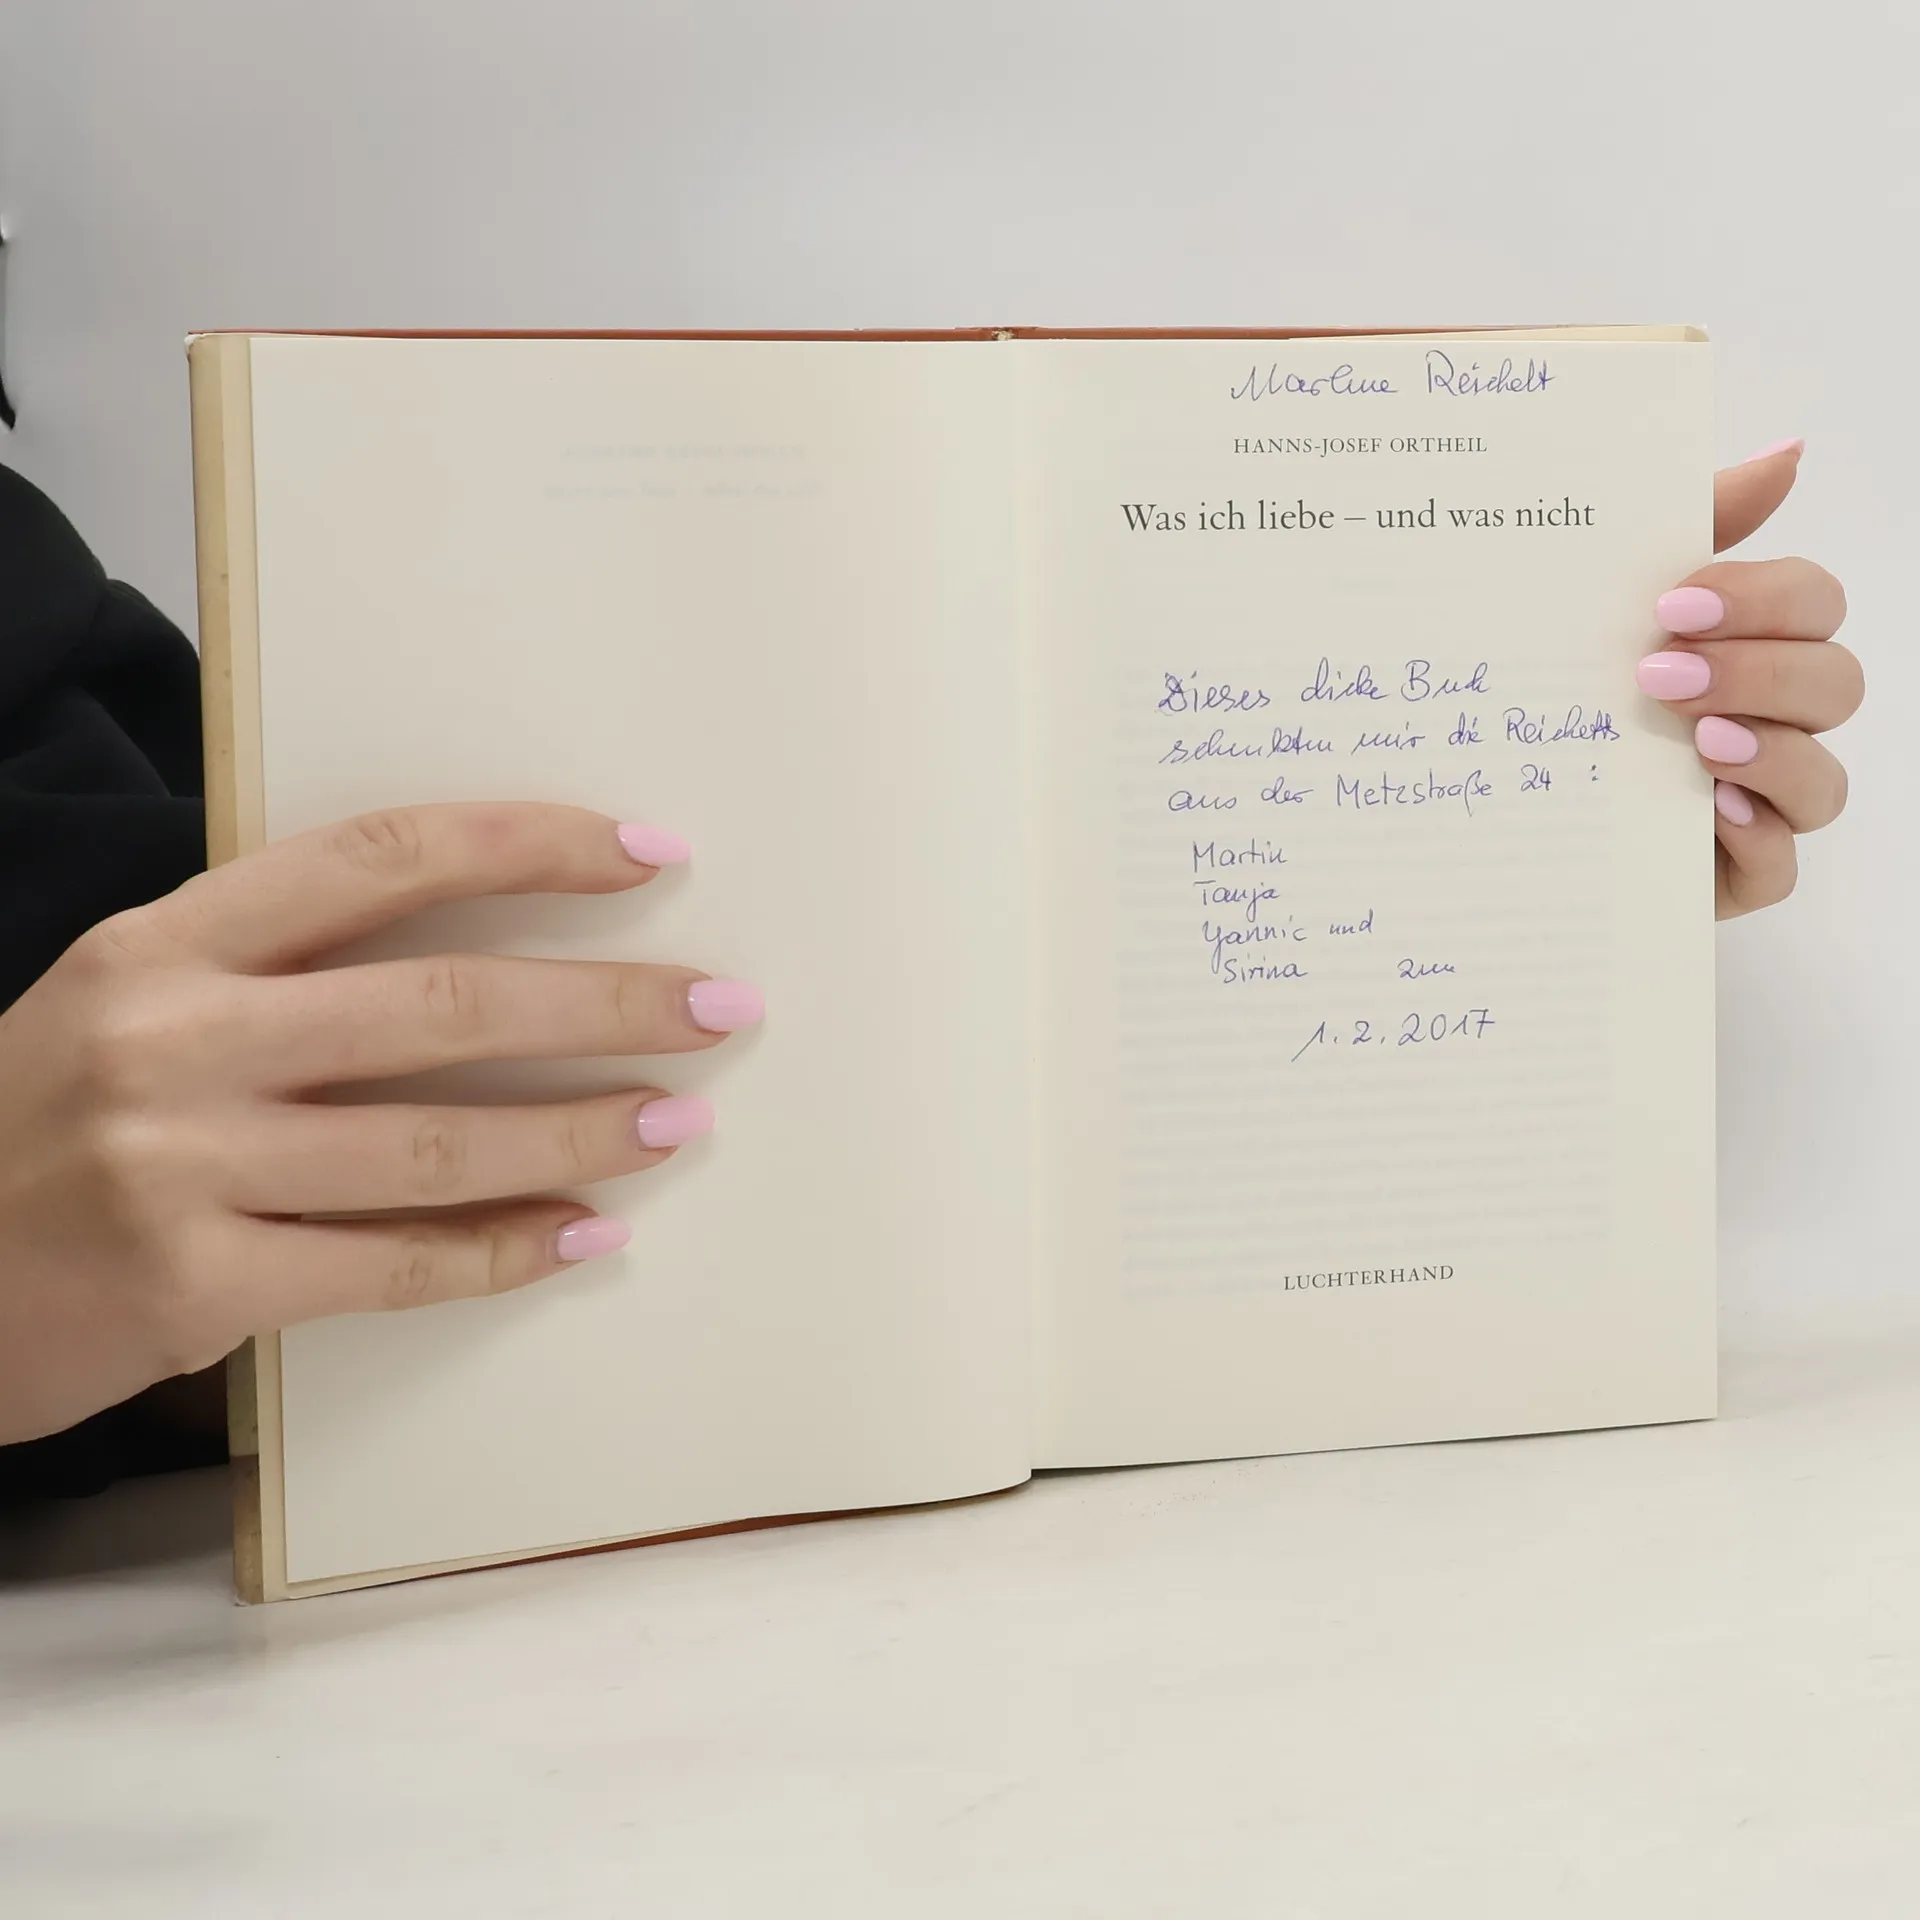 Marlene Reichelt
HANNS-JOSEF ORTHEIL
Was ich liebe – und was nicht
Dieses dicke Buch
schenkten mir die Reichelts
aus der Metzstraße 24 :
Martin
Tanja
Yannic und
Sirina zum
1. 2. 2017
LUCHTERHAND